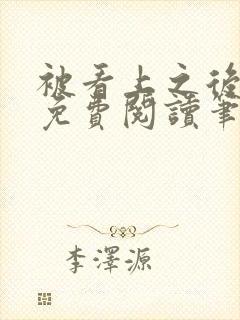 被看上之後
免費閱讀筆
李澤源